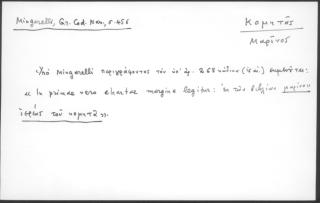 Mingarelli, Gr. Cod. Nan., σ. 456
Κομητᾶς
Μαρῖνος
Ὑπὸ Mingarelli περιγράφοντος τὸν ὑπ' ἀρ. 268 κώδικα
« In primae vero chartae margine legitur: ἐκ τῶν βιβλίων μαρίνου
ἱερέως τοῦ κομητᾶ ».